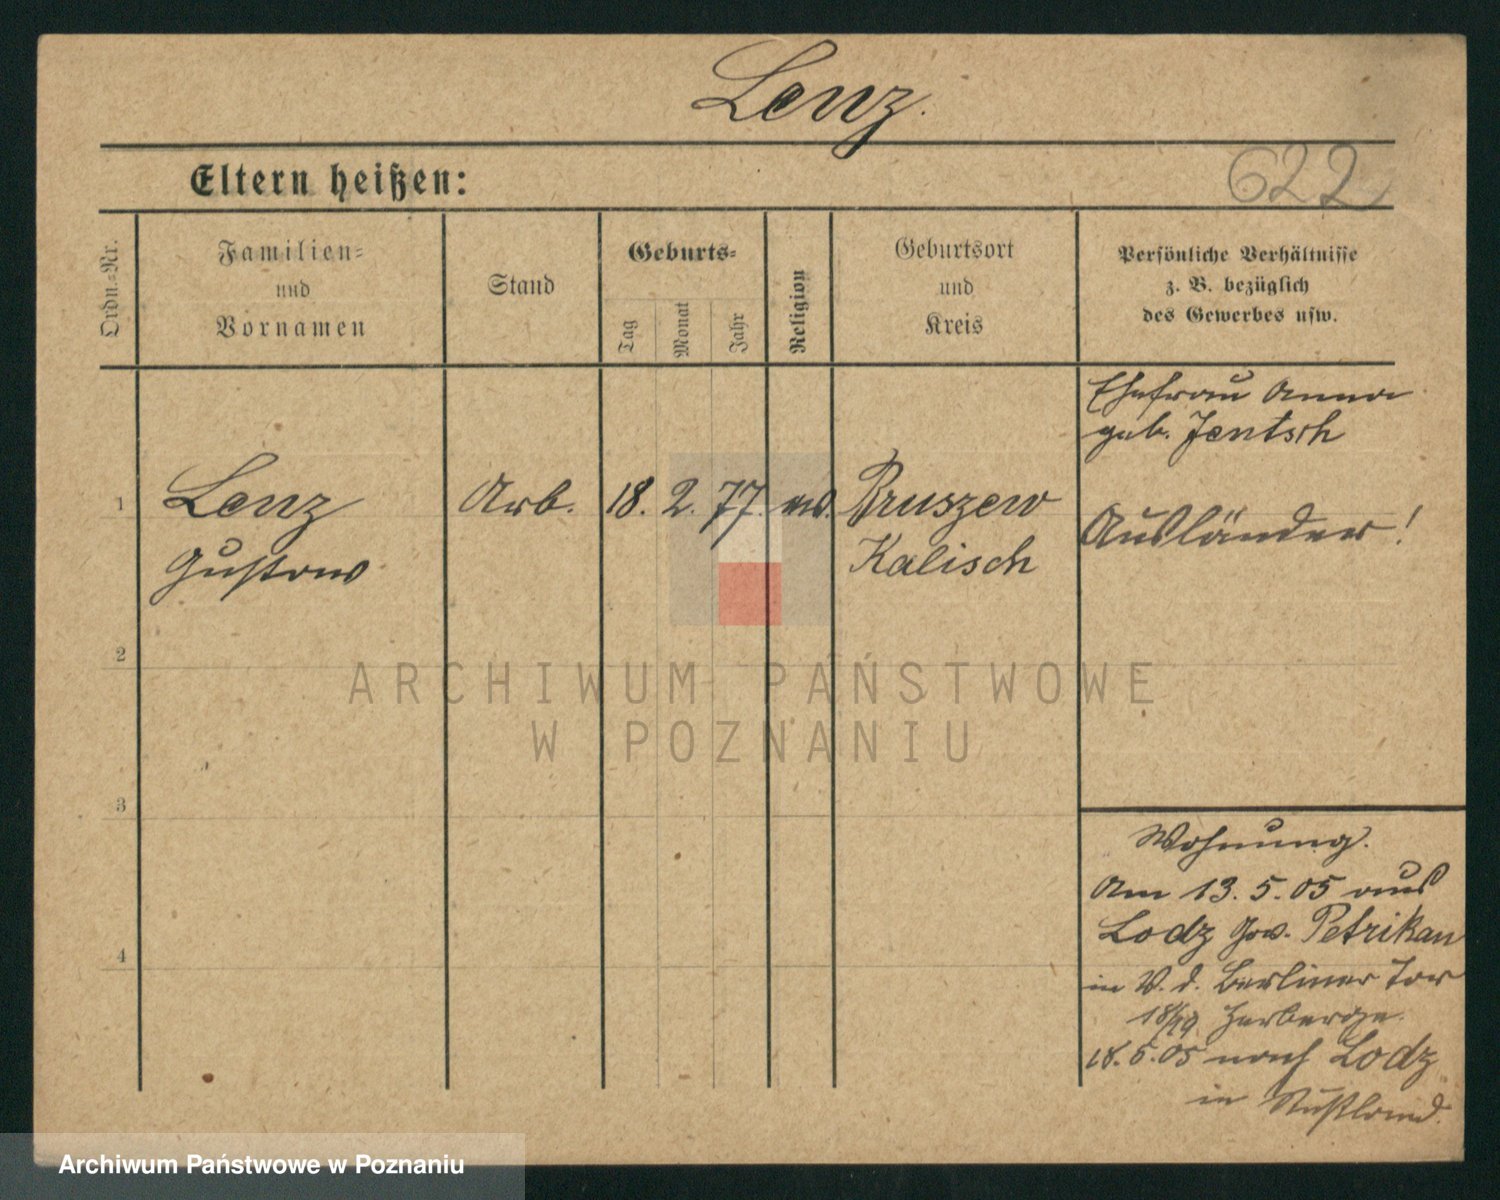 Lenz.
Eltern heißen:
622
Ordn.-Nr.
Familien-
und
Vornamen
Stand
Geburts-
Tag
Monat
Jahr
Religion
Geburtsort
und
Kreis
Persönliche Verhältnisse
z. B. bezüglich
des Gewerbes usw.
Ehefrau Anna
geb. Jentsch
1
Lenz
Arb.
18.
2.
77.
ev.
Pruszew
Gustav
Kalisch
Ausländer!
2
ARCHIWUM PAŃSTWOWE
W POZNANIU
3
Wohnung.
Am 13.5.05 aus
Lodz Gov. Petrikau
4
in V. d. Berliner Tor
18/19 Herberge.
18.5.05 nach Lodz
in Rußland.
Archiwum Państwowe w Poznaniu